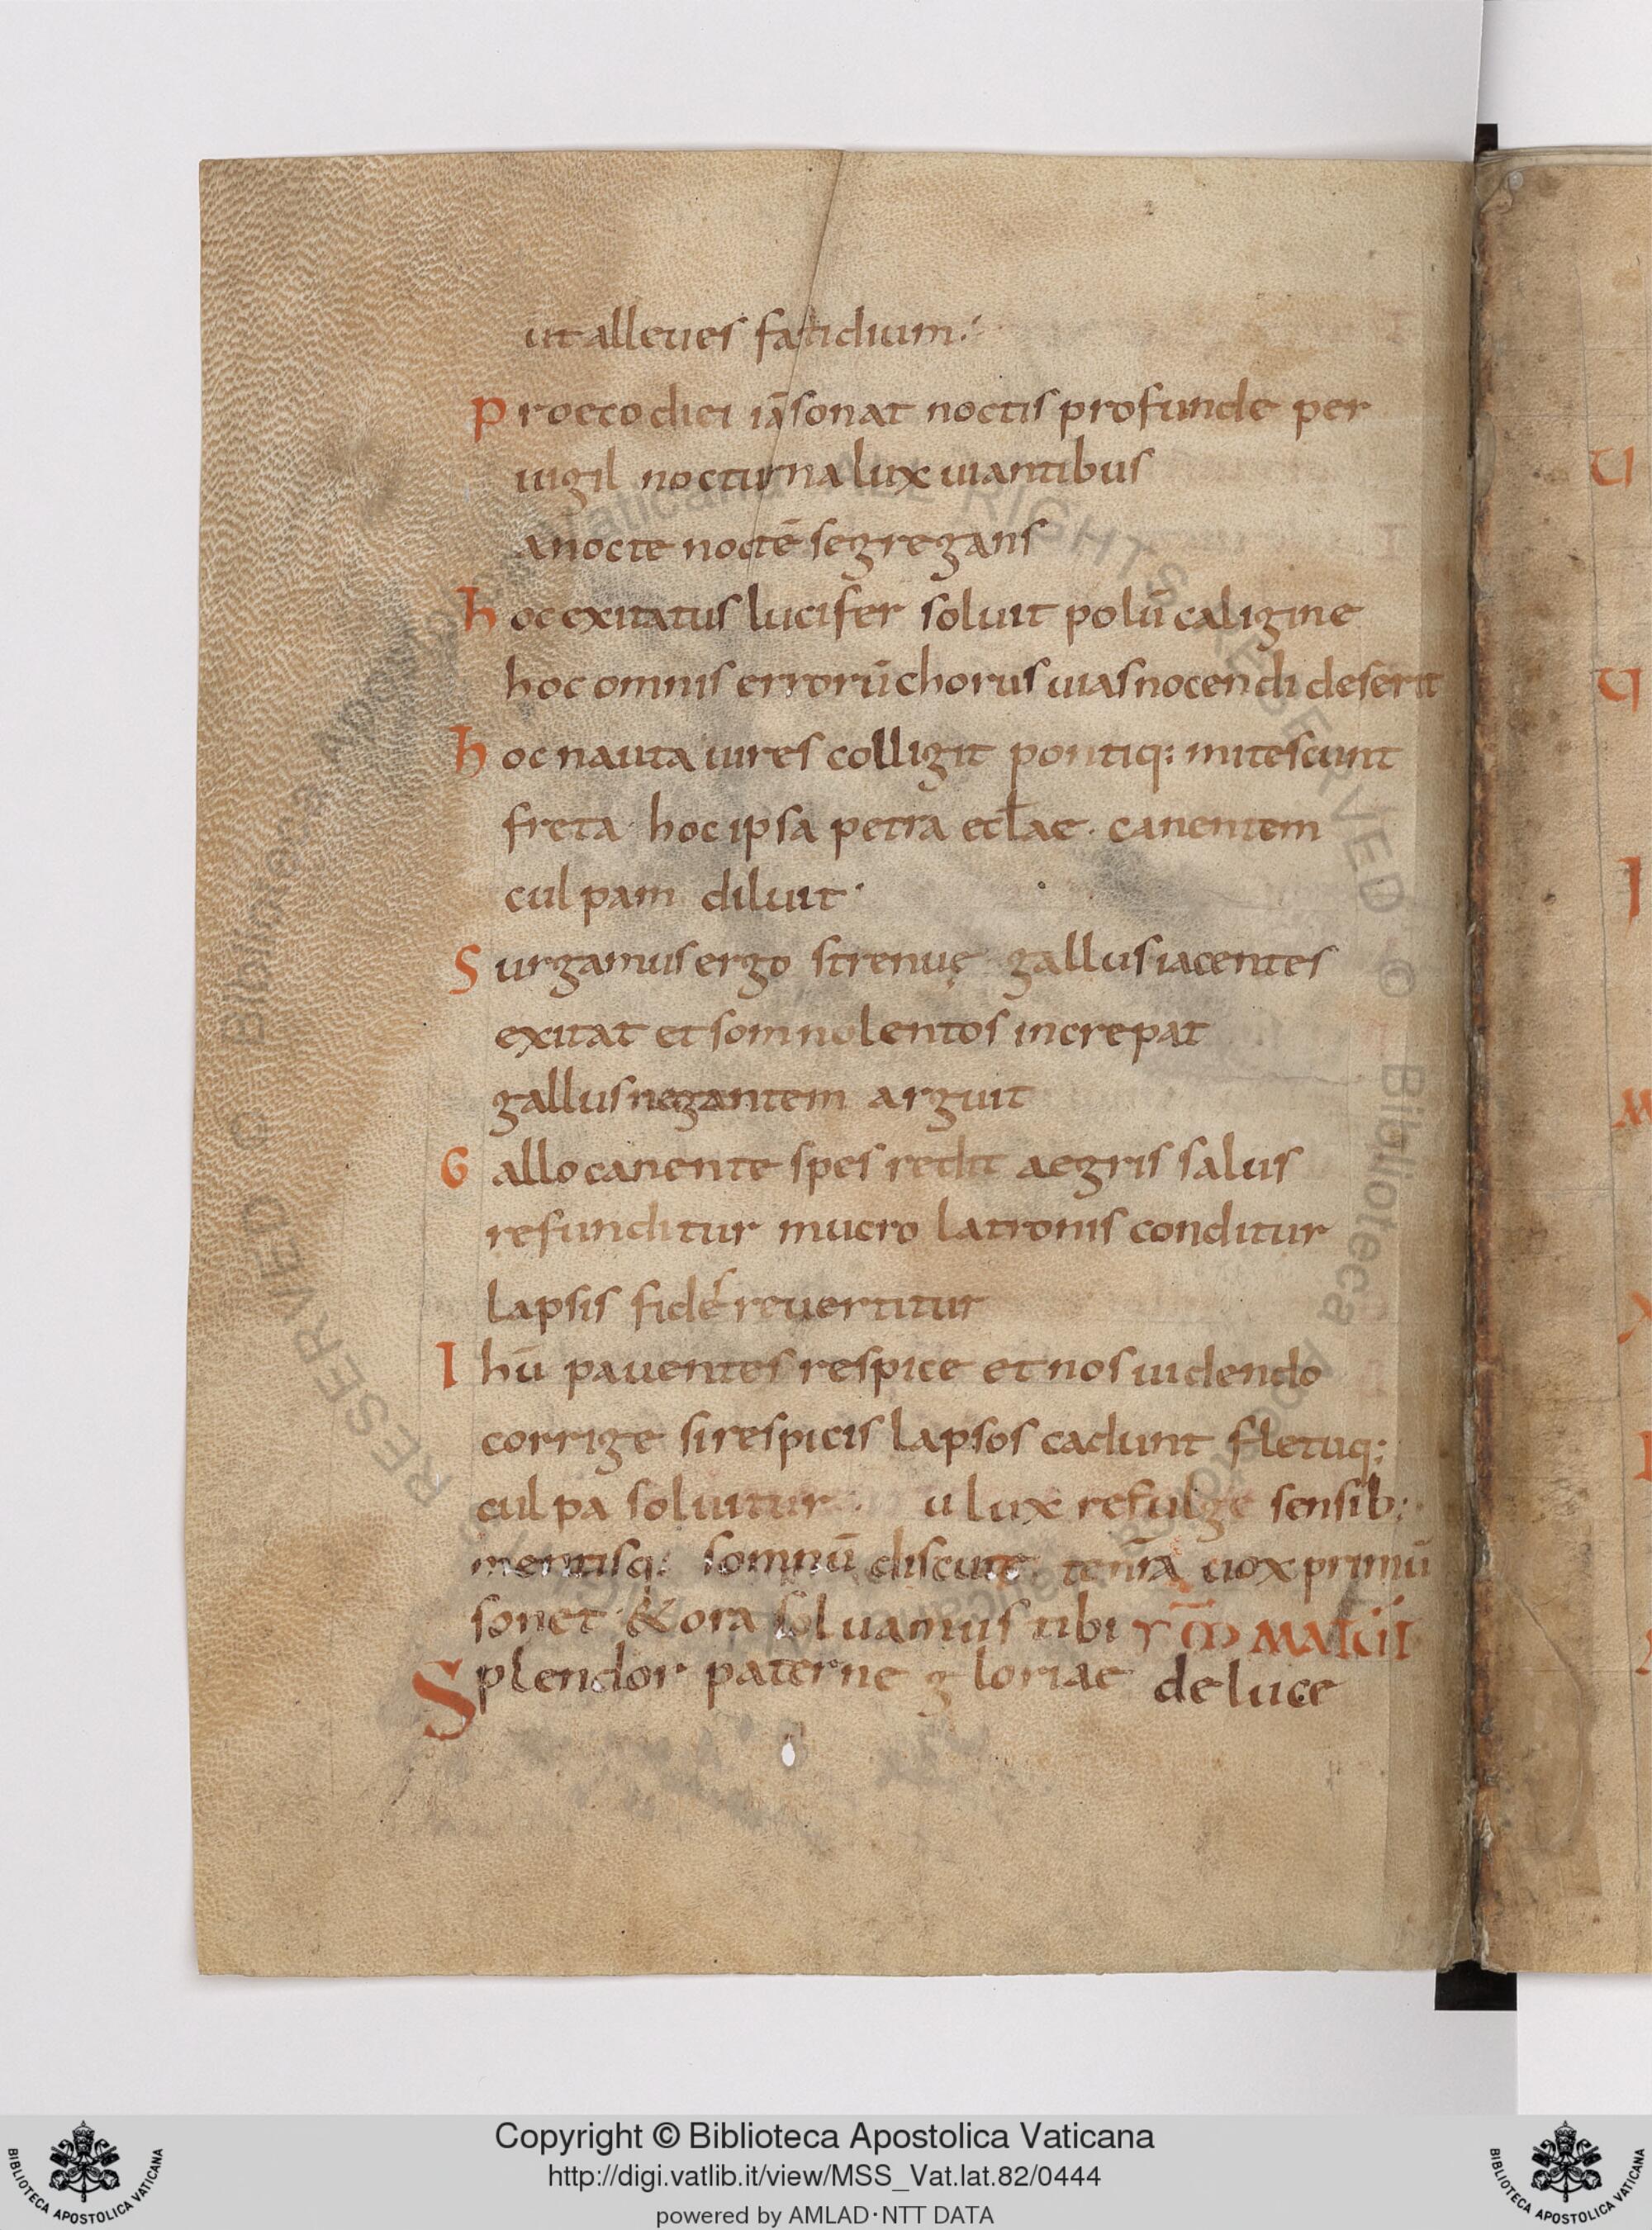 ut alleues fatidium·
Proeco diei iā sonat noctis profunde per
uigil nocturna lux uiantibus
a nocte noctē segregans
hoc exitatus lucifer soluit polū caligine
hoc omnis errorū chorus uias nocendi deserit
hoc nauta uires colligit pontiq: mitescunt
freta hoc ipsa petra ecl̄ae· canentem
culpam diluit·
Surgamus ergo strenuę gallus iacentes
exitat et somnolentos increpat
gallus negantem arguit
Gallo canente spes redit aegris salus
refunditur mucro latronis conditur
lapsis fides reuertitur
Ihū pauentes respice et nos uidendo
corrige si respicis lapsos cadunt fletuq:
culpa soluitur· u lux refulge sensib:
mentisq: somnū discute te nr̄a uox primū
sonet & ora soluamus tibi
Splendor paterne gloriae de luce
U
I
Copyright © Biblioteca Apostolica Vaticana
http://digi.vatlib.it/view/MSS_Vat.lat.82/0444
powered by AMLAD·NTT DATA
BIBLIOTECA APOSTOLICA VATICANA
BIBLIOTECA APOSTOLICA VATICANA